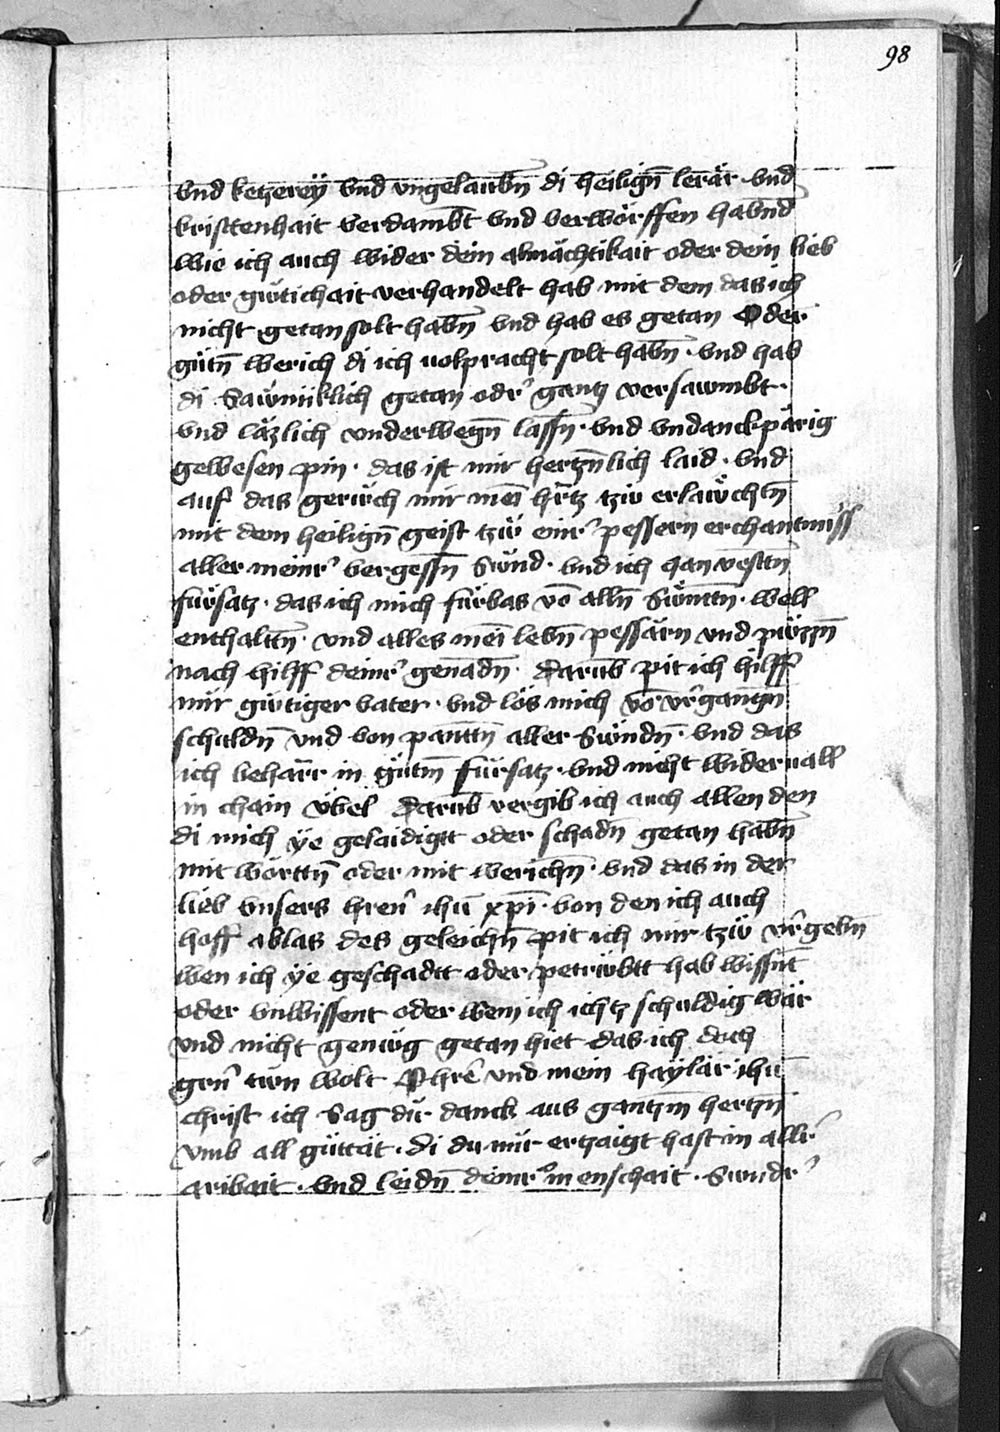 98
vnd ketzereÿ vnd vngelaubn̄ di heilign̄ lerär · vnd
kristenhait verdambt̄ vnd verwörffen habn̄d
wie ich auch wider dein almächtikait oder dein lieb
oder gütichait verhandelt hab mit dem das ich
nicht getan solt habn̄ vnd hab es getan Oder
gůtn̄ werich di ich uolpracht solt habn̄ · vnd hab
di Sawmiklich getan odr̓ gantz versawmbt ·
vnd läzlich vnderwegn̄ lassn̄ · vnd vndanckpärig
gewesen pin · das ist mir hertzn̄lich laid · vnd
auf das gerůch mir mei᷑n hr̄tz tzw erlawchtn̄
mit dem heilign̄ geist tzw einr̓ pessern erchantnuss
aller meinr̓ vergessn̄ Sünd · vnd ich han vestn̄
fürsatz · das ich mich fürbas vō alln̄ Sünttn̄ · well
enthaltn̄ · vnd alles mei᷑ lebn̄ pessärn vnd püzzn̄
nach hilff deinr̓ genādn̄ · Darūb pit ich hilff
mir gütiger vater · vnd lös mich vō vr̓gangn̄
schuldn̄ vnd von panttn̄ aller Sündn̄ · vnd das
ich beharr in gůtm̄ fürsatz · vnd nicht wideruall
in chain übel Darūb vergib ich auch allen den
di mich ÿe gelaidigtt oder schadn̄ getan habn̄
mit worttn̄ oder mit werichn̄ · vnd das in der
lieb vnsers hren̓ ihū xpī · von den ich auch
hoff ablas des geleichn̄ pit ich mir tzw vr̓gebn̄
wen ich ÿe geschadtt oder petrübtt hab wissn̄t
oder vnwissent oder wem ich ichtz schuldig wär
vnd nicht genůg getan hiet das ich doch
grn̓ tůn wolt O hrē vnd mein haÿlär ihū
christ ich Sag dir danck aus gantzm̄ hertzn̄
vmb all gůttät · di du mir ertzaigt hast in allr̓
aribait · vnd leidn̄ deinr̓ menschait · Sundr̓